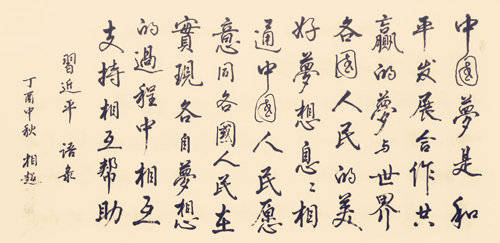 中国夢是和
平发展合作共
贏的夢与世界
各国人民的美
好夢想息〻相
通中国人民愿
意同各國人民在
實現各自夢想
的過程中相互
支持相互帮助
習近平語录
丁酉中秋 相超